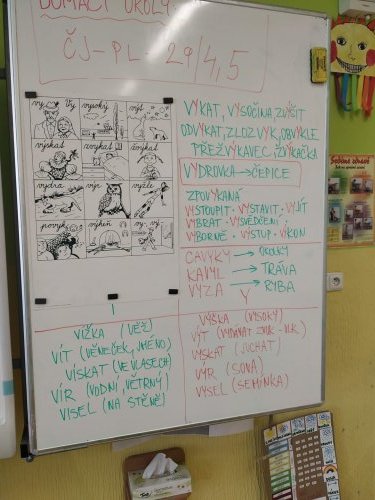 DOMÁCÍ ÚKOLY:
ČJ - PL - 29/4,5
vy, Vy vysoký výt
výskat zvykat žvýkat
výdra výr vyžle
povyk výheň vy-, vý-
VYKAT, VYSOČINA, ZVÝŠIT
ODVYKAT, ZLOZVYK, OBVYKLE
PŘEŽVÝKAVEC, ŽVÝKAČKA
VYDROVKA → ČEPICE
ZPOVYKANÁ
VYSTOUPIT · VYSTAVIT · VYJÍT
VYBRAT · VYSVĚDČENÍ ·
VÝBORNĚ · VÝSTUP · VÝKON
CAVYKY → OKOLKY
KAVYL → TRÁVA
VYZA → RYBA
I
Y
VÍŽKA (VĚŽ)
VÍT (VĚNEČEK, JMÉNO)
VÍSKAT (VE VLASECH)
VÍR (VODNÍ, VĚTRNÝ)
VISEL (NA STĚNĚ)
VÝŠKA (VYSOKÝ)
VÝT (VYDÁVAT ZVUK - VLK)
VÝSKAT (JUCHAT)
VÝR (SOVA)
VYSEL (SEMÍNKA)